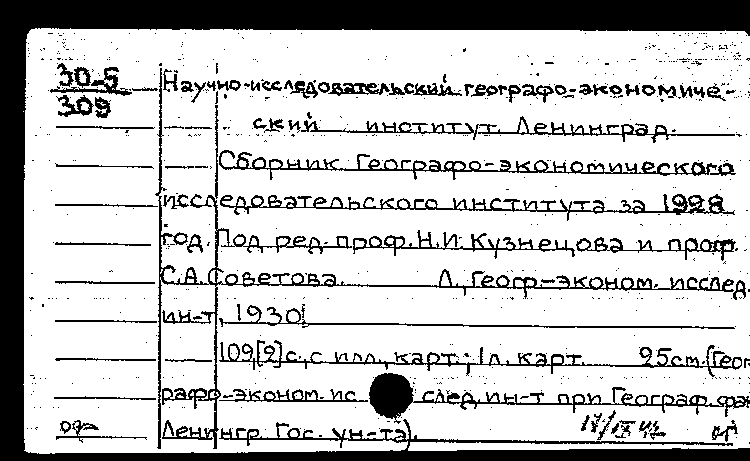 30-5
309
Научно-исследовательский географо-экономиче-
ский институт. Ленинград.
Сборник Географо-экономического
исследовательского института за 1928
год. Под ред. проф. Н.И. Кузнецова и проф.
С.А. Советова. Л., Геогр-эконом. исслед.
ин-т, 1930.
109,[2]с., с илл., карт.; 1л. карт. 25см. (Геог-
рафо-эконом. ис след. ин-т при Географ. фак
Ленингр. Гос. ун-та).